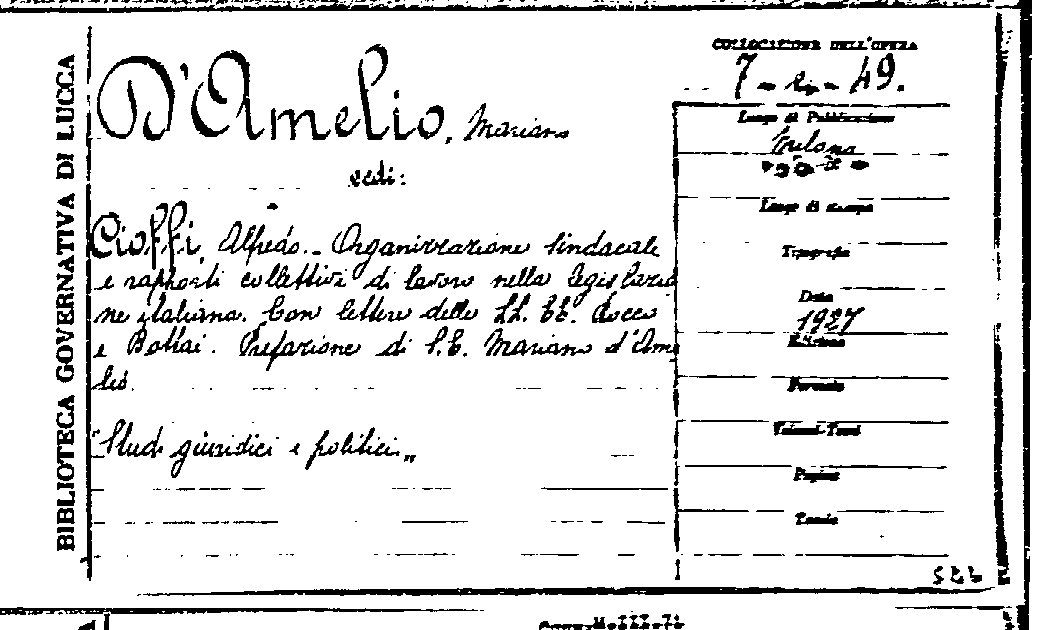 BIBLIOTECA GOVERNATIVA DI LUCCA
COLLOCAZIONE DELL'OPERA
7 - - 49.
D'Amelio, Mariano
vedi:
Cioffi, Alfredo. - Organizzazione sindacale
e rapporti collettivi di lavoro nella legislazio
ne italiana. Con lettere delle LL. EE. Rocco
e Bottai. Prefazione di S. E. Mariano d'Ame
lio.
"Studi giuridici e politici„
Luogo di Pubblicazione
Milano
Luogo di stampa
Tipografia
Data
1927
Edizione
Formato
Volumi-Tomi
Pagine
Tavole